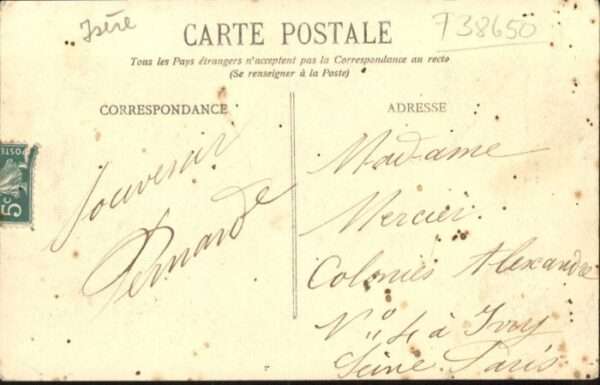 Isère
T38650
CARTE POSTALE
Tous les Pays étrangers n'acceptent pas la Correspondance au recto
(Se renseigner à la Poste)
CORRESPONDANCE
ADRESSE
POSTES
5c
Souvenir
Madame
Mercier
Colonies Alexandre
N° 4 à Ivry
Seine Paris